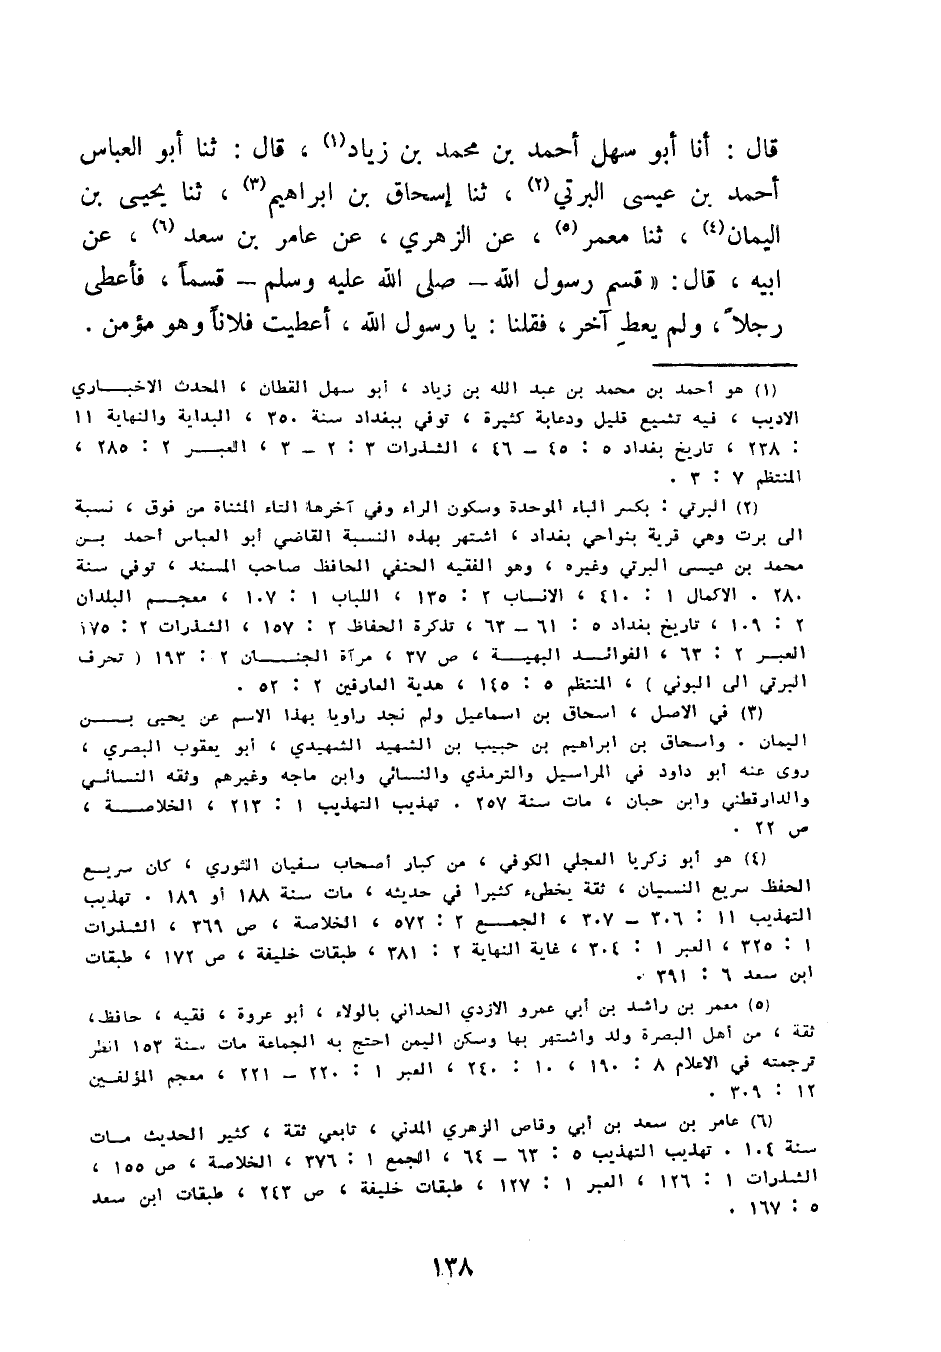 قال : أنا أبو سهل أحمد بن محمد بن زياد(١) ، قال : ثنا أبو العباس
أحمد بن عيسى البرتي(٢) ، ثنا إسحاق بن ابراهيم(٣) ، ثنا يحيى بن
اليمان(٤) ، ثنا معمر(٥) ، عن الزهري ، عن عامر بن سعد(٦) ، عن
ابيه ، قال : « قسم رسول الله – صلى الله عليه وسلم – قسماً ، فأعطى
رجلاً ، ولم يعطِ آخر ، فقلنا : يا رسول الله ، أعطيت فلاناً وهو مؤمن .
(١) هو أحمد بن محمد بن عبد الله بن زياد ، أبو سهل القطان ، المحدث الاخباري
الاديب ، فيه تشيع قليل ودعابة كثيرة ، توفي ببغداد سنة ٣٥٠ ، البداية والنهاية ١١
: ٢٣٨ ، تاريخ بغداد ٥ : ٤٥ – ٤٦ ، الشذرات ٣ : ٢ – ٣ ، العبر ٢ : ٢٨٥ ،
المنتظم ٧ : ٣ .
(٢) البرتي : بكسر الباء الموحدة وسكون الراء وفي آخرها التاء المثناة من فوق ، نسبة
الى برت وهي قرية بنواحي بغداد ، اشتهر بهذه النسبة القاضي أبو العباس أحمد بن
محمد بن عيسى البرتي وغيره ، وهو الفقيه الحنفي الحافظ صاحب المسند ، توفي سنة
٢٨٠ . الاكمال ١ : ٤١٠ ، الانساب ٢ : ١٣٥ ، اللباب ١ : ١٠٧ ، معجم البلدان
٢ : ١٠٩ ، تاريخ بغداد ٥ : ٦١ – ٦٣ ، تذكرة الحفاظ ٢ : ١٥٧ ، الشذرات ٢ : ١٧٥
العبر ٢ : ٦٣ ، الفوائد البهية ، ص ٣٧ ، مرآة الجنان ٢ : ١٩٣ ( تحرف
البرتي الى البوني ) ، المنتظم ٥ : ١٤٥ ، هدية العارفين ٢ : ٥٢ .
(٣) في الاصل ، اسحاق بن اسماعيل ولم نجد راويا بهذا الاسم عن يحيى بن
اليمان . واسحاق بن ابراهيم بن حبيب بن الشهيد الشهيدي ، أبو يعقوب البصري ،
روى عنه أبو داود في المراسيل والترمذي والنسائي وابن ماجه وغيرهم وثقه النسائي
والدارقطني وابن حبان ، مات سنة ٢٥٧ . تهذيب التهذيب ١ : ٢١٣ ، الخلاصة ،
ص ٢٢ .
(٤) هو أبو زكريا العجلي الكوفي ، من كبار أصحاب سفيان الثوري ، كان سريع
الحفظ سريع النسيان ، ثقة يخطىء كثيرا في حديثه ، مات سنة ١٨٨ أو ١٨٩ . تهذيب
التهذيب ١١ : ٣٠٦ – ٣٠٧ ، الجمع ٢ : ٥٧٢ ، الخلاصة ، ص ٣٦٩ ، الشذرات
١ : ٣٢٥ ، العبر ١ : ٣٠٤ ، غاية النهاية ٢ : ٣٨١ ، طبقات خليفة ، ص ١٧٢ ، طبقات
ابن سعد ٦ : ٣٩١ .
(٥) معمر بن راشد بن أبي عمرو الازدي الحداني بالولاء ، أبو عروة ، فقيه ، حافظ ،
ثقة ، من أهل البصرة ولد واشتهر بها وسكن اليمن احتج به الجماعة مات سنة ١٥٣ انظر
ترجمته في الاعلام ٨ : ١٩٠ ، ١٠ : ٢٤٠ ، العبر ١ : ٢٢٠ – ٢٢١ ، معجم المؤلفين
١٢ : ٣٠٩ .
(٦) عامر بن سعد بن أبي وقاص الزهري المدني ، تابعي ثقة ، كثير الحديث مات
سنة ١٠٤ . تهذيب التهذيب ٥ : ٦٣ – ٦٤ ، الجمع ١ : ٣٧٦ ، الخلاصة ، ص ١٥٥ ،
الشذرات ١ : ١٢٦ ، العبر ١ : ١٢٧ ، طبقات خليفة ، ص ٢٤٣ ، طبقات ابن سعد
٥ : ١٦٧ .
١٣٨